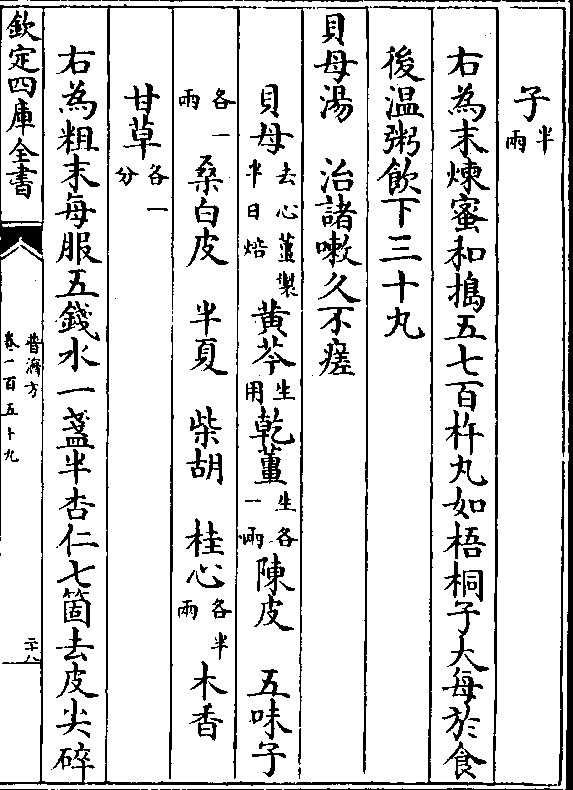 子半兩
右為末煉蜜和搗五七百杵丸如梧桐子大每於食
後温粥飲下三十丸
貝母湯　治諸嗽久不瘥
貝母去心薑製半日焙　黄芩生用　乾薑生各一兩　陳皮　五味子
各一兩　桑白皮　半夏　柴胡　桂心各半兩　木香
甘草各一分
右為粗末每服五錢水一盞半杏仁七箇去皮尖碎
欽定四庫全書
普濟方
卷一百五十九
二十八